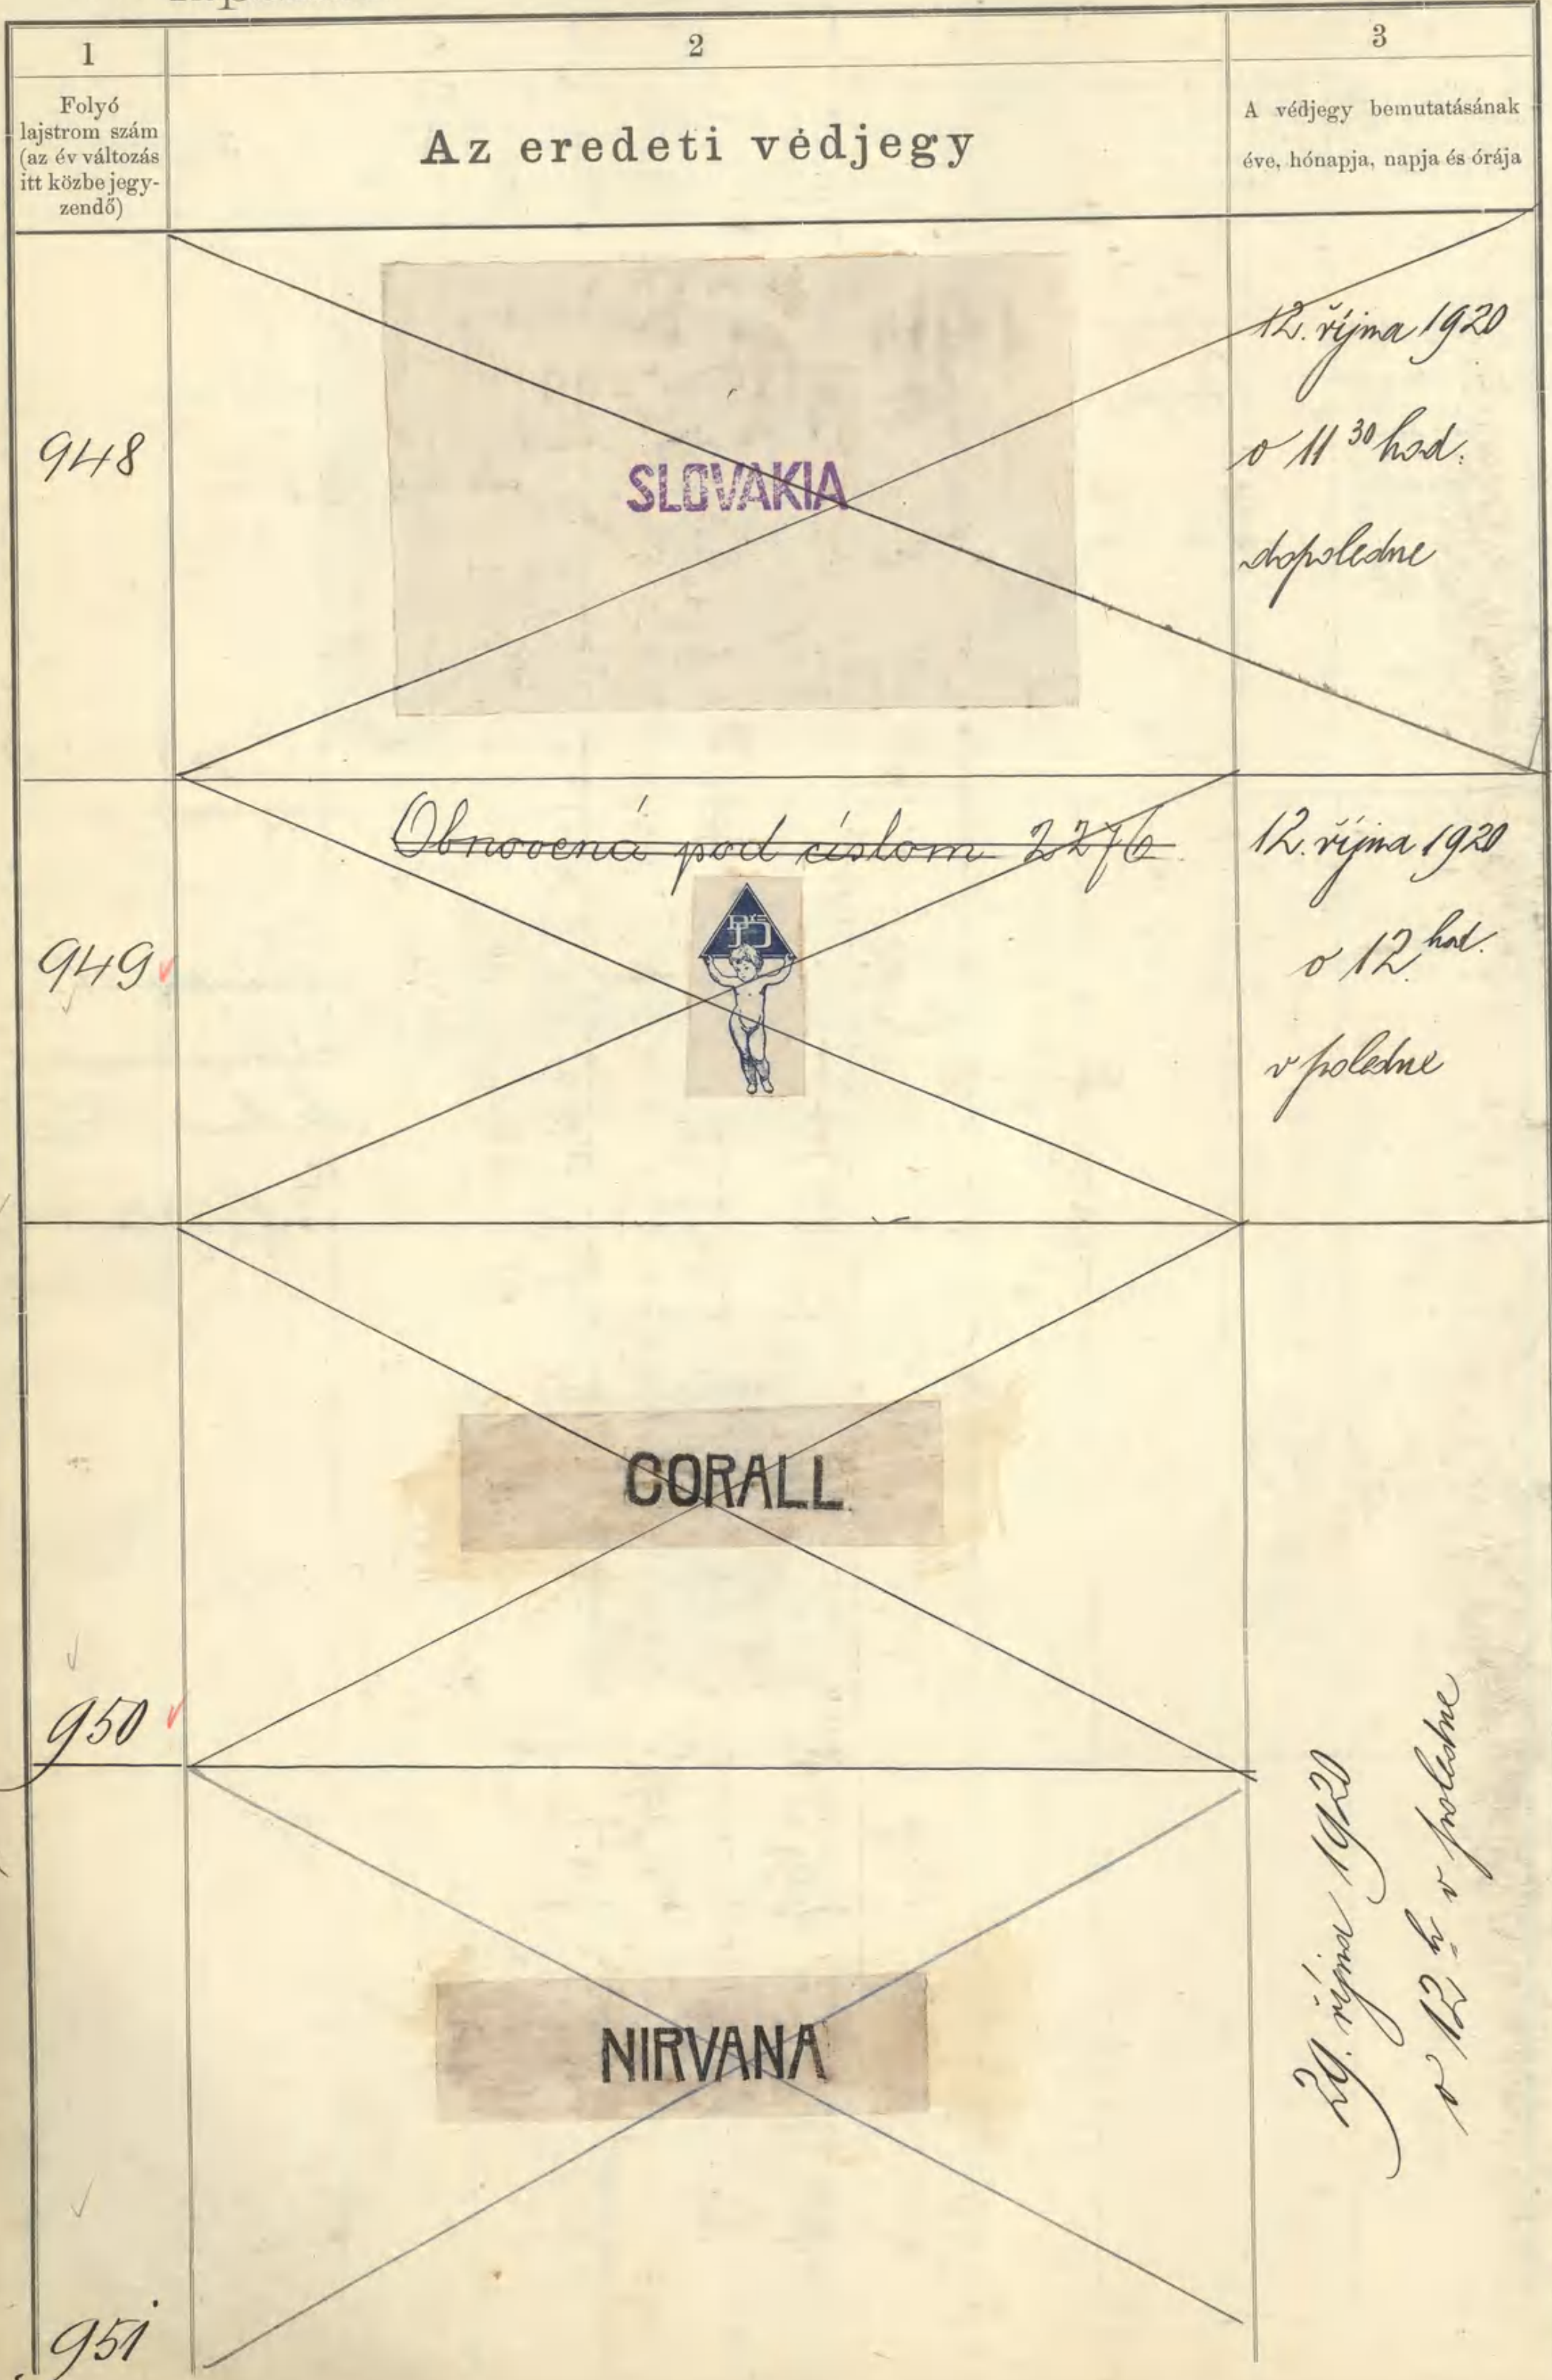 1
2
3
Folyó
lajstrom szám
(az év változás
itt közbe jegy-
zendő)
Az eredeti védjegy
A védjegy bemutatásának
éve, hónapja, napja és órája
948
SLOVAKIA
12. října 1920
o 11 30 hod.
dopoledne
949
Obnovená pod číslom 2276
12. října 1920
o 12 hod.
v poledne
950
CORALL
951
NIRVANA
29. října 1920
o 12 h v poledne